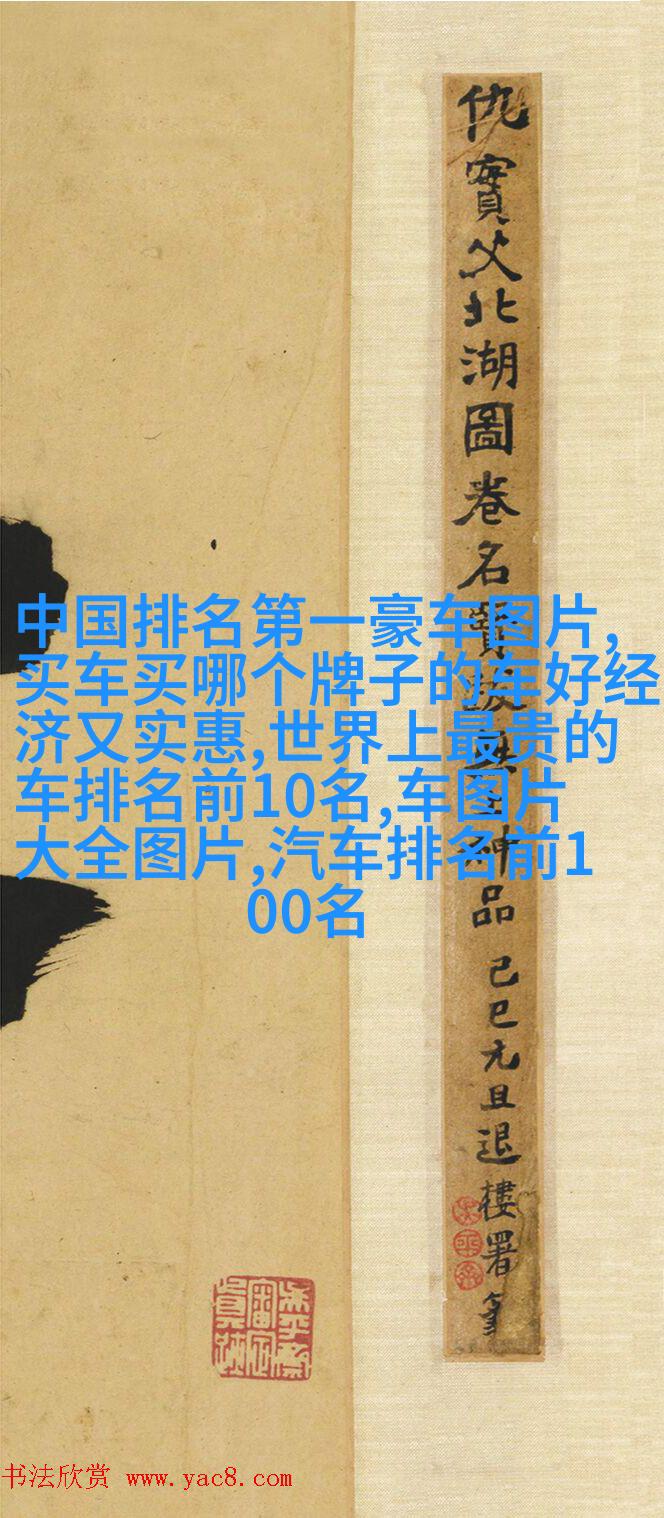 仇實父北湖圖卷名賢跋 神品
己巳元旦退樓署
中国排名第一豪车图片,
买车买哪个牌子的车好经
济又实惠,世界上最贵的
车排名前10名,车图片
大全图片,汽车排名前1
00名
书法欣赏 www.yac8.com